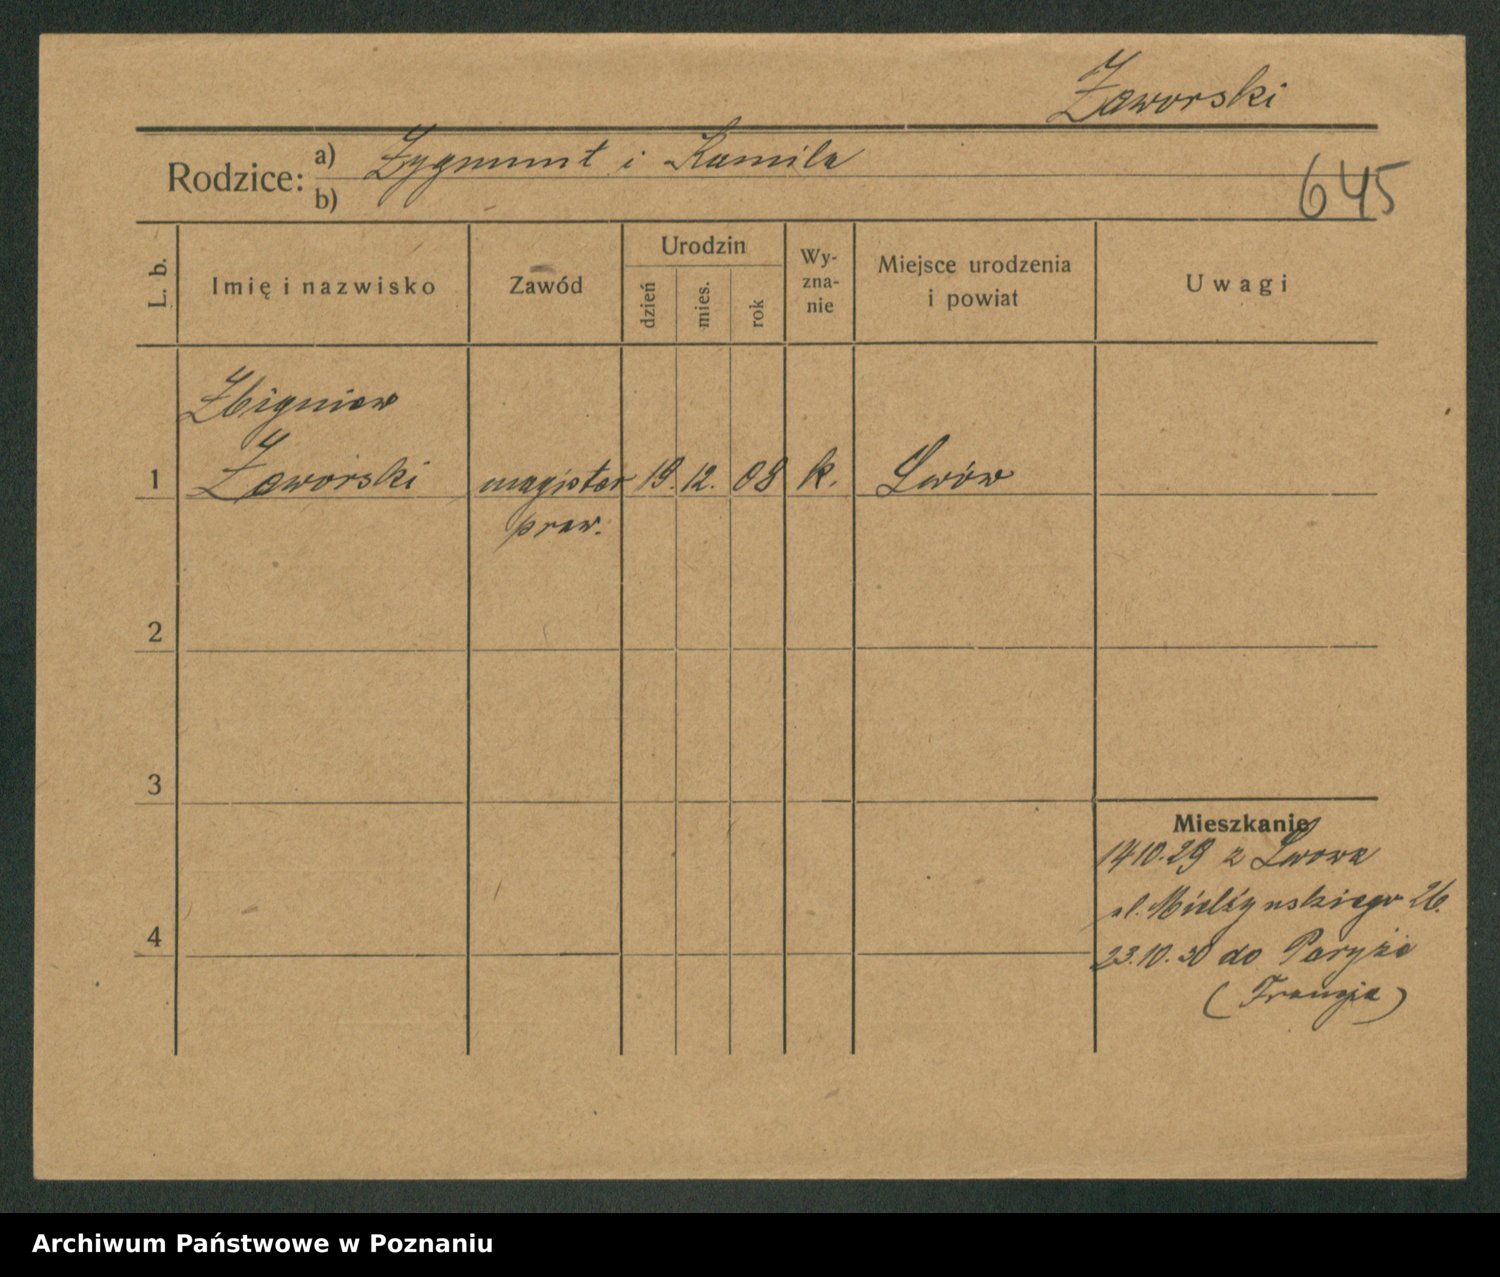 Zaworski
Rodzice: a) Zygmunt i Kamila
b)
645
L. b.
Imię i nazwisko
Zawód
Urodzin
dzień
mies.
rok
Wy-
zna-
nie
Miejsce urodzenia
i powiat
Uwagi
Zbigniew
1 Zaworski magister 19. 12. 08 k. Lwów
praw.
2
3
Mieszkanie
14 10. 29 z Lwowa
ul. Mielżynskiego 26.
4
23. 10. 30 do Paryża
(Francja)
Archiwum Państwowe w Poznaniu